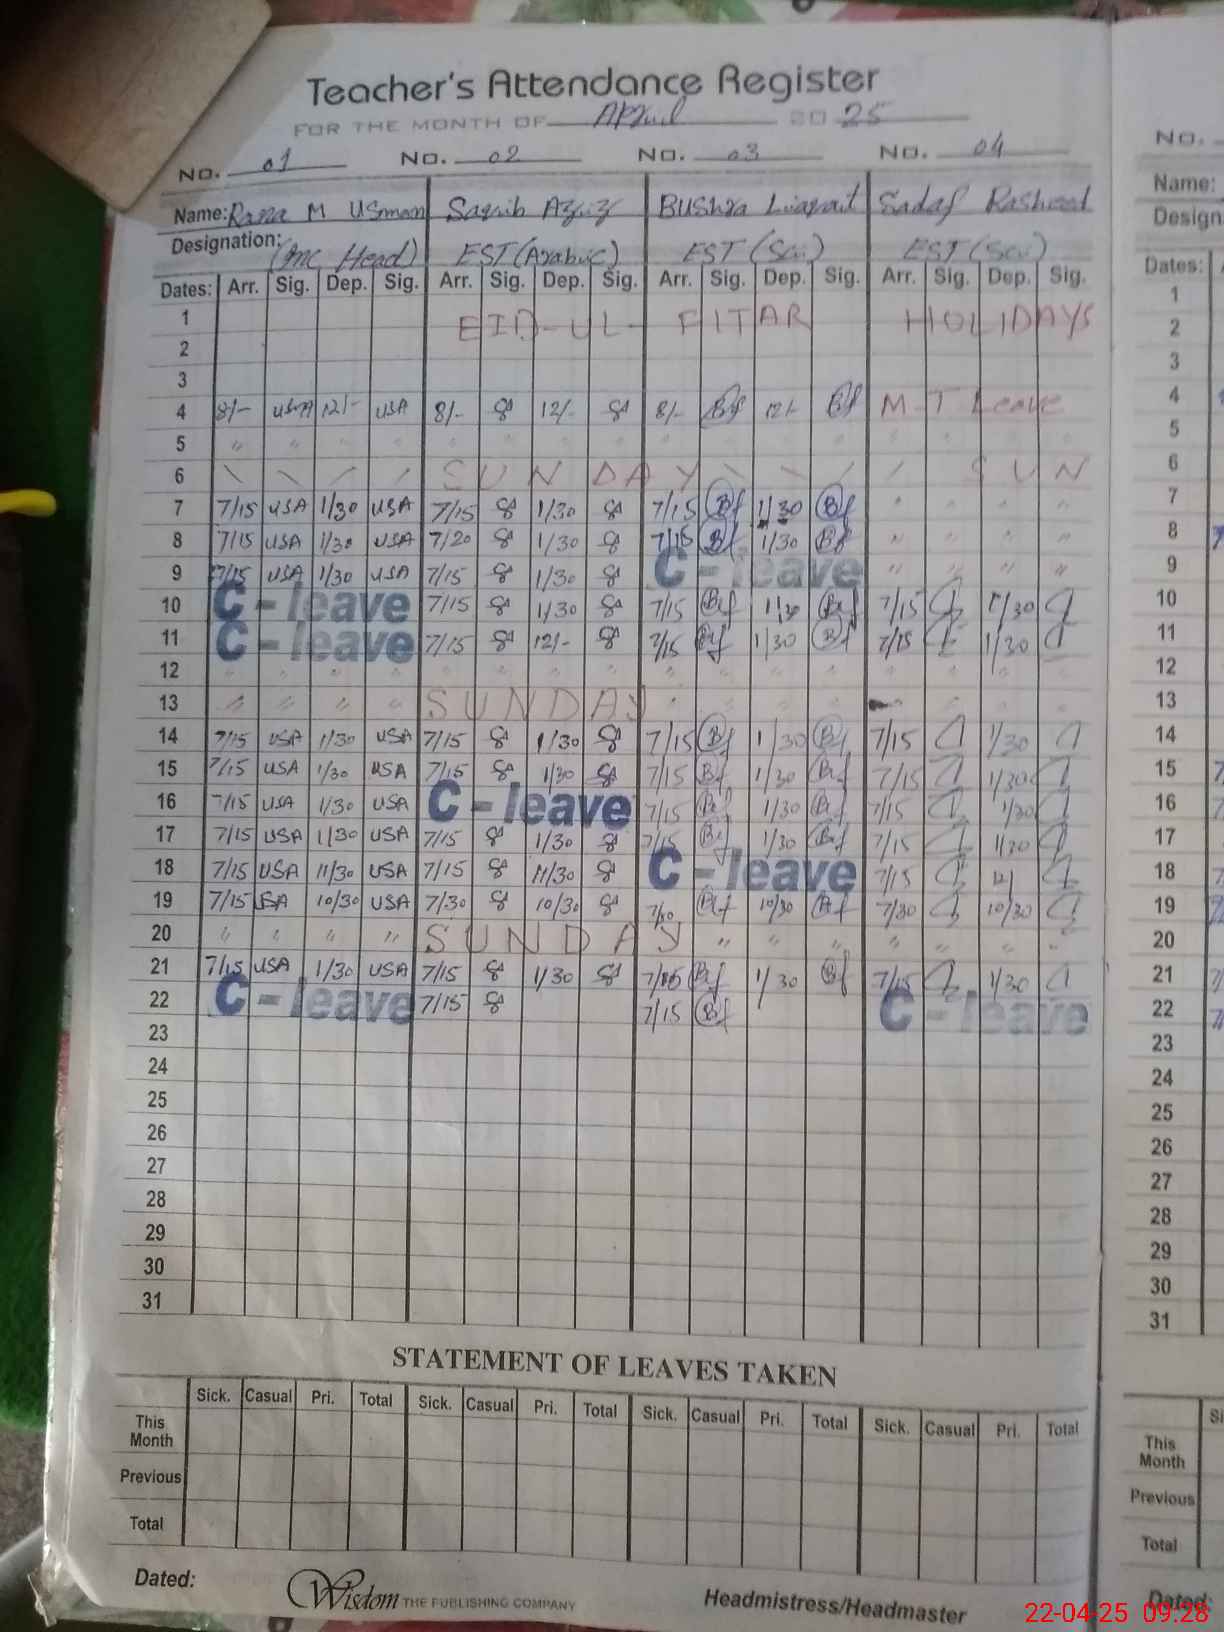 Teacher's Attendance Register
FOR THE MONTH OF April 2025
No. 01 No. 02 No. 03 No. 04 No.
Name: Rana M Usman Saqib Aziz Bushra Liaqat Sadaf Rasheed Name:
Designation: (Inc Head) EST (Arabic) EST (Sci) EST (Sci) Design
Dates: Arr. Sig. Dep. Sig. Arr. Sig. Dep. Sig. Arr. Sig. Dep. Sig. Arr. Sig. Dep. Sig. Dates:
1 EID-UL-FITAR HOLIDAYS 1
2 2
3 3
4 8/- USA 12/- USA 8/- 12/- 8/- Bf 12/- Bf M-T Leave 4
5 " " " " " " " " " " " " " " " " 5
6 SUNDAY SUN 6
7 7/15 USA 1/30 USA 7/15 1/30 7/15 Bf 1/30 Bf " " " " 7
8 7/15 USA 1/30 USA 7/20 1/30 7/15 Bf 1/30 Bf " " " " 8
9 7/15 USA 1/30 USA 7/15 1/30 C-leave " " " " 9
10 C-leave 7/15 1/30 7/15 Bf 1/30 Bf 7/15 1/30 10
11 C-leave 7/15 12/- 7/15 Bf 1/30 Bf 7/15 1/30 11
12 " " " " " " " " " " " " " " " " 12
13 " " " " SUNDAY " " " " " " " 13
14 7/15 USA 1/30 USA 7/15 1/30 7/15 Bf 1/30 Bf 7/15 1/30 14
15 7/15 USA 1/30 USA 7/15 1/30 7/15 Bf 1/30 Bf 7/15 1/30 15
16 7/15 USA 1/30 USA C-leave 7/15 Bf 1/30 Bf 7/15 1/30 16
17 7/15 USA 1/30 USA 7/15 1/30 7/15 Bf 1/30 Bf 7/15 1/30 17
18 7/15 USA 11/30 USA 7/15 11/30 C-leave 7/15 12/ 18
19 7/15 USA 10/30 USA 7/30 10/30 7/30 Bf 10/30 Bf 7/30 10/30 19
20 " " " " SUNDAY " " " " " " " 20
21 7/15 USA 1/30 USA 7/15 1/30 7/15 Bf 1/30 Bf 7/15 1/30 21
22 C-leave 7/15 7/15 Bf C-leave 22
23 23
24 24
25 25
26 26
27 27
28 28
29 29
30 30
31 31
STATEMENT OF LEAVES TAKEN
Sick. Casual Pri. Total Sick. Casual Pri. Total Sick. Casual Pri. Total Sick. Casual Pri. Total Si
This Month This Month
Previous Previous
Total Total
Dated: Wisdom THE PUBLISHING COMPANY Headmistress/Headmaster Dated:
22-04-25 09:28